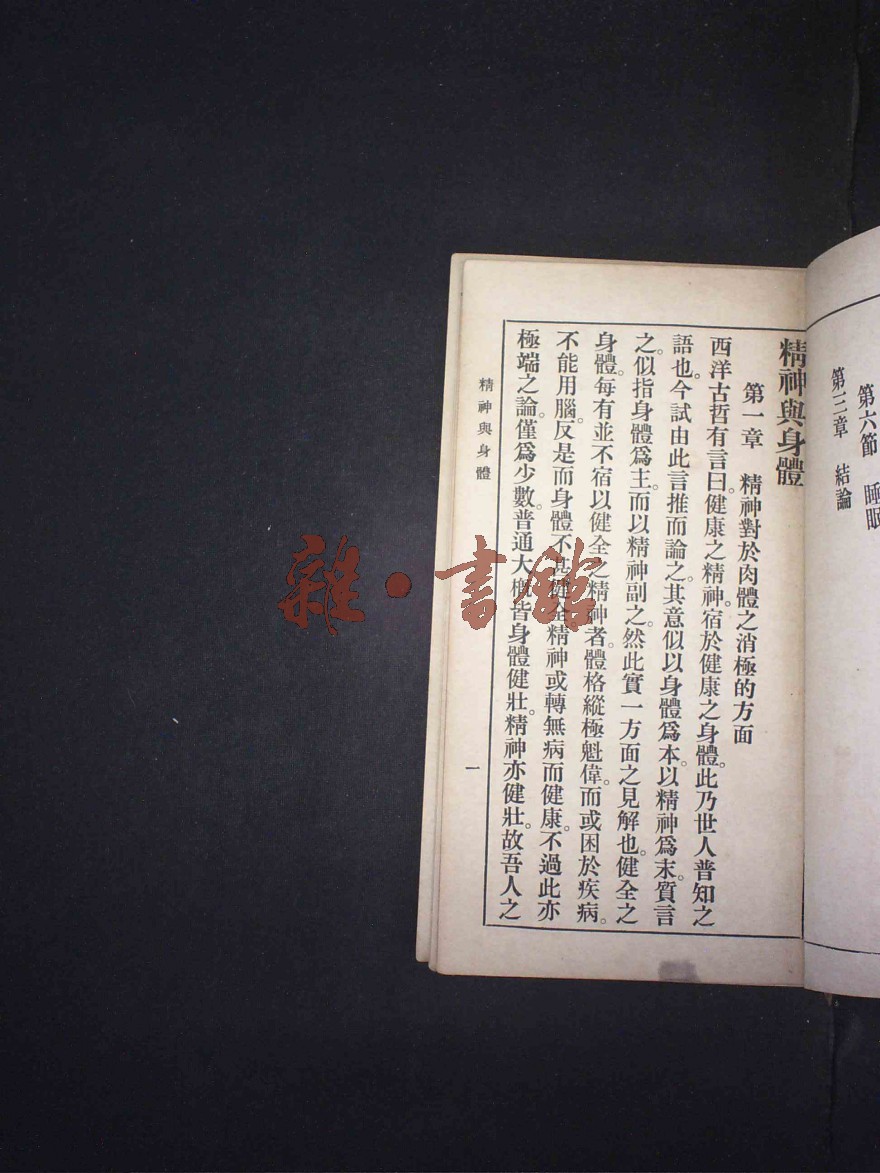 第六節　睡眠
第三章　結論
精神與身體
第一章　精神對於肉體之消極的方面
西洋古哲有言曰。健康之精神。宿於健康之身體。此乃世人普知之
語也。今試由此言推而論之。其意似以身體爲本。以精神爲末。質言
之。似指身體爲主。而以精神副之。然此實一方面之見解也。健全之
身體。每有並不宿以健全之精神者。體格縱極魁偉。而或困於疾病。
不能用腦。反是而身體不甚健全。精神或轉無病而健康。不過此亦
極端之論。僅爲少數。普通大概皆身體健壯。精神亦健壯。故吾人之
精神與身體
一
雜·書館